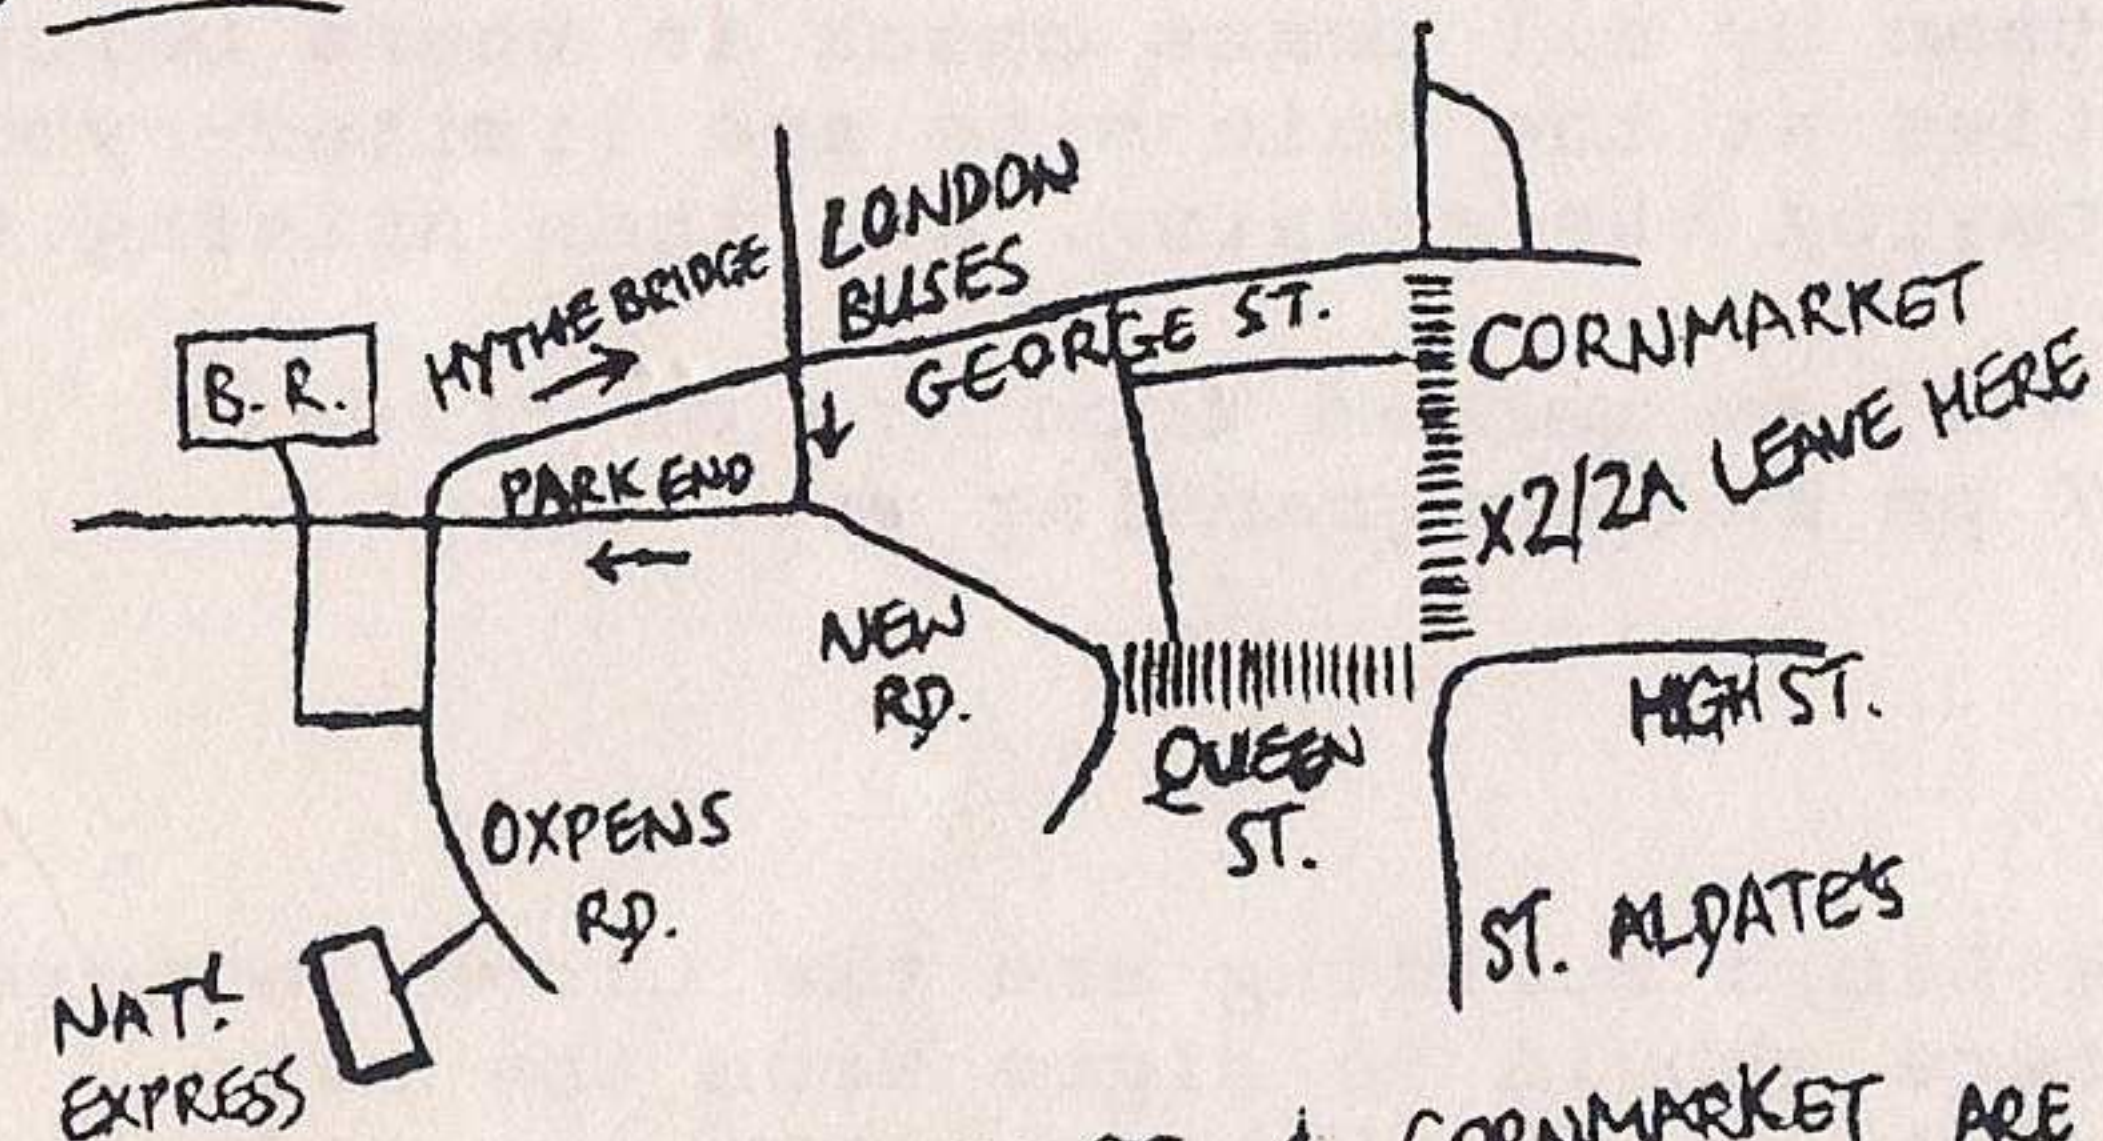 LONDON
BUSES
HYTHE BRIDGE
B.R.
GEORGE ST.
CORNMARKET
X2/2A LEAVE HERE
PARK END
NEW
RD.
QUEEN
ST.
HIGH ST.
OXPENS
RD.
ST. ALDATE'S
NATL
EXPRESS
CORNMARKET ARE